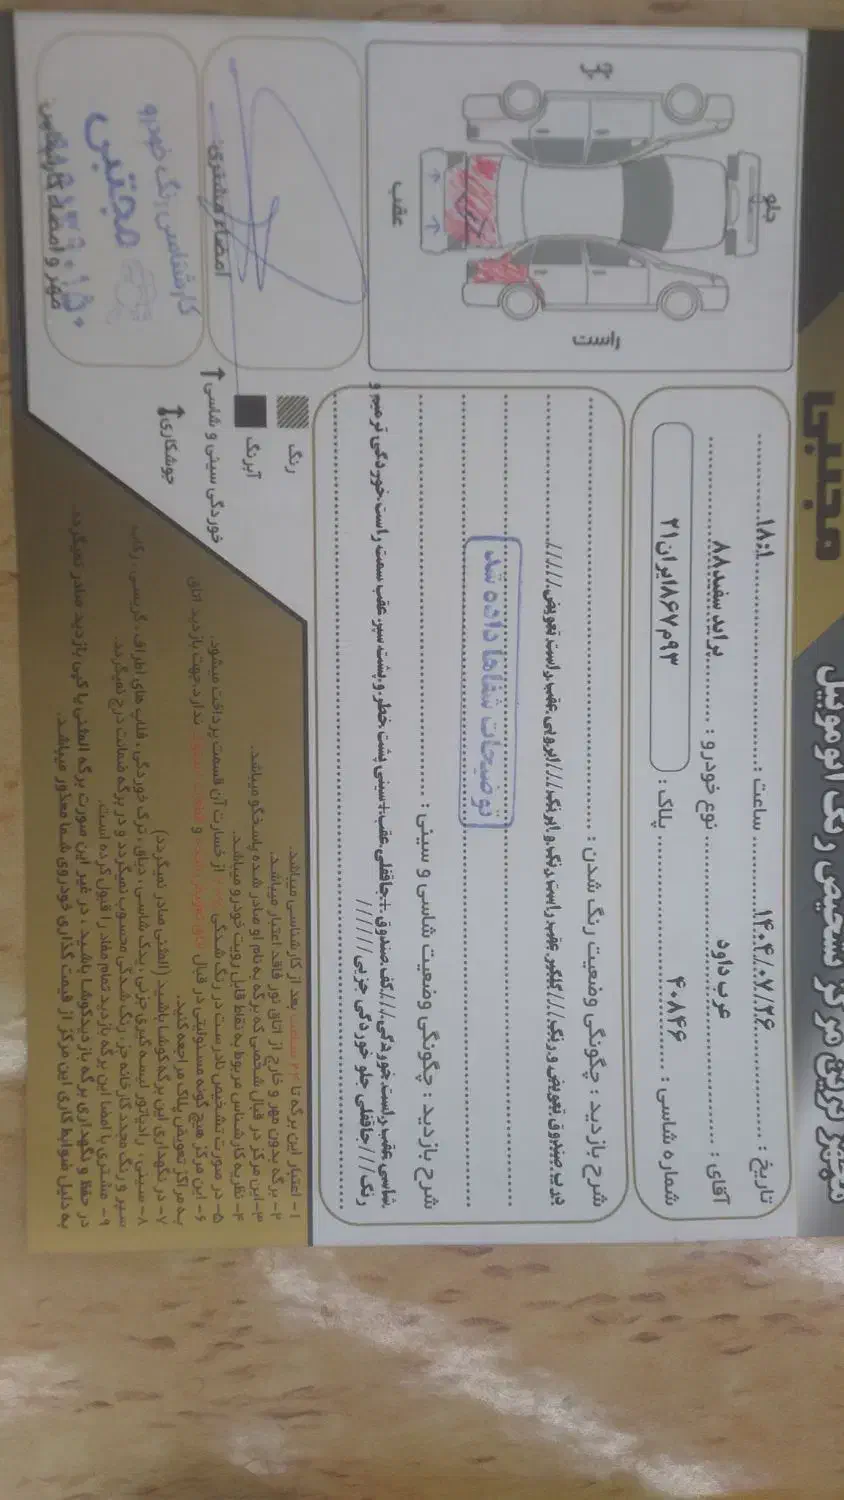 مجتبی
تاریخ : ۱۴۰۴/۰۷/۲۶ ساعت : ۱۸:۱
آقای : عرب داود نوع خودرو : پراید سفید ۸۸
شماره شاسی : ۴۰۸۴۶ پلاک : ۹۳م۸۶۷ایران۲۱
شرح بازدید : چگونگی وضعیت رنگ شدن :
درب صندوق تعویض و رنگ///گلگیر عقب راست رنگ و ابرنگ///ابرویی عقب راست تعویض/////
توضیحات شفاها داده شد
شرح بازدید : چگونگی وضعیت شاسی و سینی :
شاسی عقب راست خوردگی///کف صندوق+جاقفلی عقب+سینی پشت خطر و پشت سپر عقب سمت راست خوردگی ترمیم و
رنگ///جاقفلی جلو خوردگی جزیی//////
جلو
عقب
راست
چپ
رنگ
آبرنگ
خوردگی سینی و شاسی ↑
جوشکاری ↑
امضاء مشتری
مهر و امضاء کارشناس
کارشناس رنگ خودرو
مجتبی
۱- اعتبار این برگه تا ۲۴ ساعت بعد از کارشناسی میباشد.
۲- برگه بدون مهر و خارج از اتاق نور فاقد اعتبار میباشد.
۳-این مرکز در قبال شخصی که برگه به نام او صادر شده پاسخگو میباشد.
۴- نظریه کارشناس مربوط به نقاط قابل رویت خودرو میباشد.
۵- در صورت تشخیص نادرست در رنگ شدگی از خسارت آن قسمت پرداخت میشود.
۶- این مرکز هیچ گونه مسئولیتی در قبال و ندارد،جهت بازدید اتاق
به مراکز تعویض پلاک مراجعه کنید.
۷- در نگهداری این برگه کوشا باشید (المثنی صادر نمیگردد)
۸- سینی ، رادیاتور لیسه گیری جزئی ، یدک شاسی ، دیاق ، ترک خوردگی ، قلب های اطراف ، گریسی ، رکاب
سپر و رنگ مجدد کارخانه جزء رنگ شدگی محسوب نمیگردد و در برگه ضمانت درج نمیگردد.
۹- مشتری با امضا این برگه بازدید تمام مفاد را قبول کرده است.
در حفظ و نگهداری برگه بازدید کوشا باشید ، در غیر این صورت برگه المثنی یا کپی بازدید صادر نمیگردد.
به دلیل ضوابط کاری این مرکز از قیمت گذاری خودروی شما معذور میباشد.